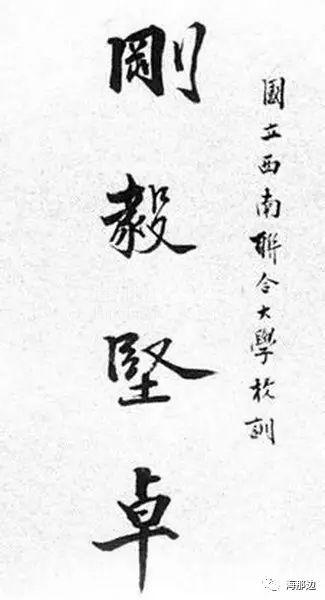 國立西南聯合大學校訓
剛毅堅卓
海那边